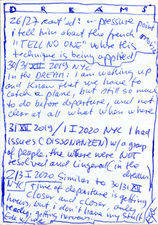 D R E A M S
26/27 cont'ed: → pressure point
I tell him about the french movie
"TELL NO ONE" where this
technique is being applied
30/31 XII 2019 NYC
IN THE DREAM: I am waking up
and know that we have to
catch a plane, but still so much
to do before departure, and not
clear at all what when where.
31 XII 2019 / 1 I 2020 NYC I had
issues (DISSONANZEN) w/ a group
of people, the where were NOT
resolved and lingered in the dream
2/3 I 2020 Similar to 30/31 XII
NYC Time of departure is getting
closer and closer, under
hours and I don't have my stuff
ready, getting nervous.